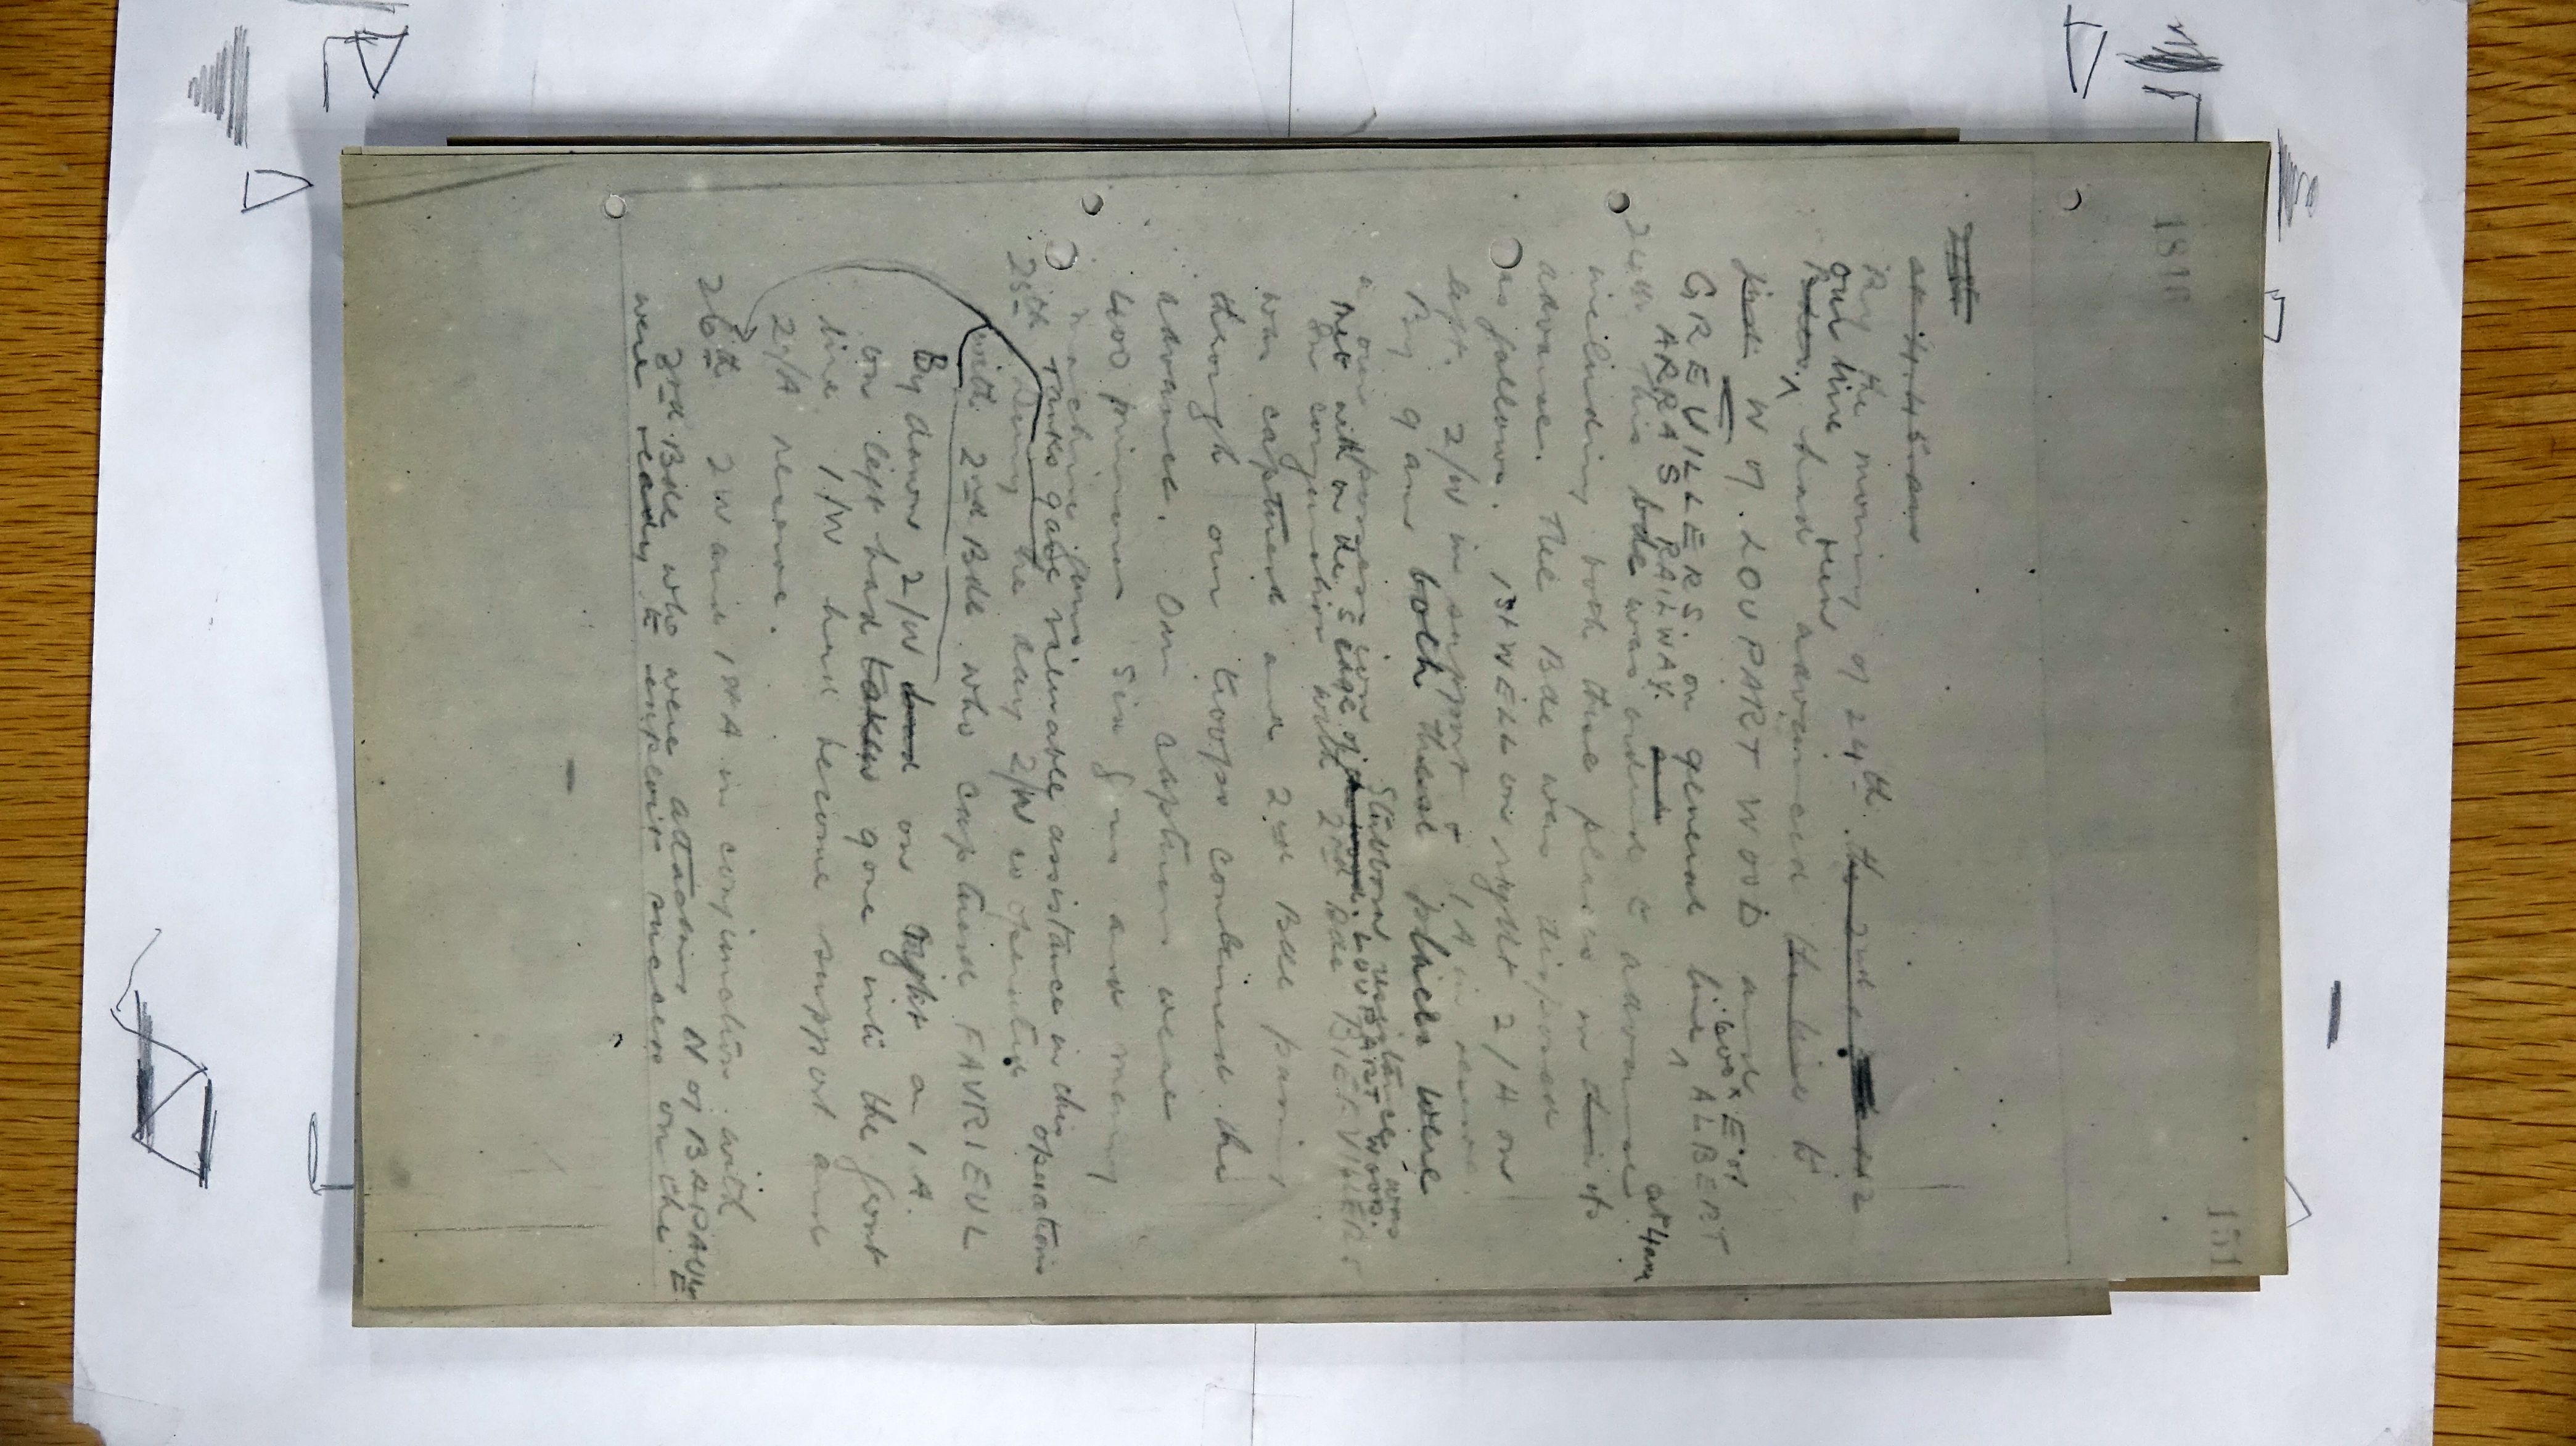 1818
151
at 4.45 am
By the morning of 24th. the 2nd
our line had been advanced the line to
just W of LOUPART WOOD and
GREVILLERS on general line 1600x E of ALBERT
ARRAS RAILWAY. and
24th. This bde was ordered to advance at 4am
including both these places in their its
advance. The Bde was disposed
as follows. 1st WELL on right 2/A on
left. 2/W in support & 1A in reserve.
By 9 am both these places were
in our possession. Stubborn resistance was
met with on the S edge of the wood. LOUPART WOOD.
In conjunction with 2nd Bde BIEFVILLERS
was captured and 2nd Bde passing
through our troops continued the
advance. Our captures were
400 prisoners six guns and many
machine guns.
Tanks gave valuable assistance in this operation
25th During the day 2/W co operated
with 2nd Bde who captured FAVRIEUL
By dawn 2/W had on right a 1A.
on left had taken gone into the front
line 1/W had become support and
2/A reserve.
26th 2W and 1st A in conjunction with
3rd Bde who were attacking N of BAPAUME
were ready to exploit success on the